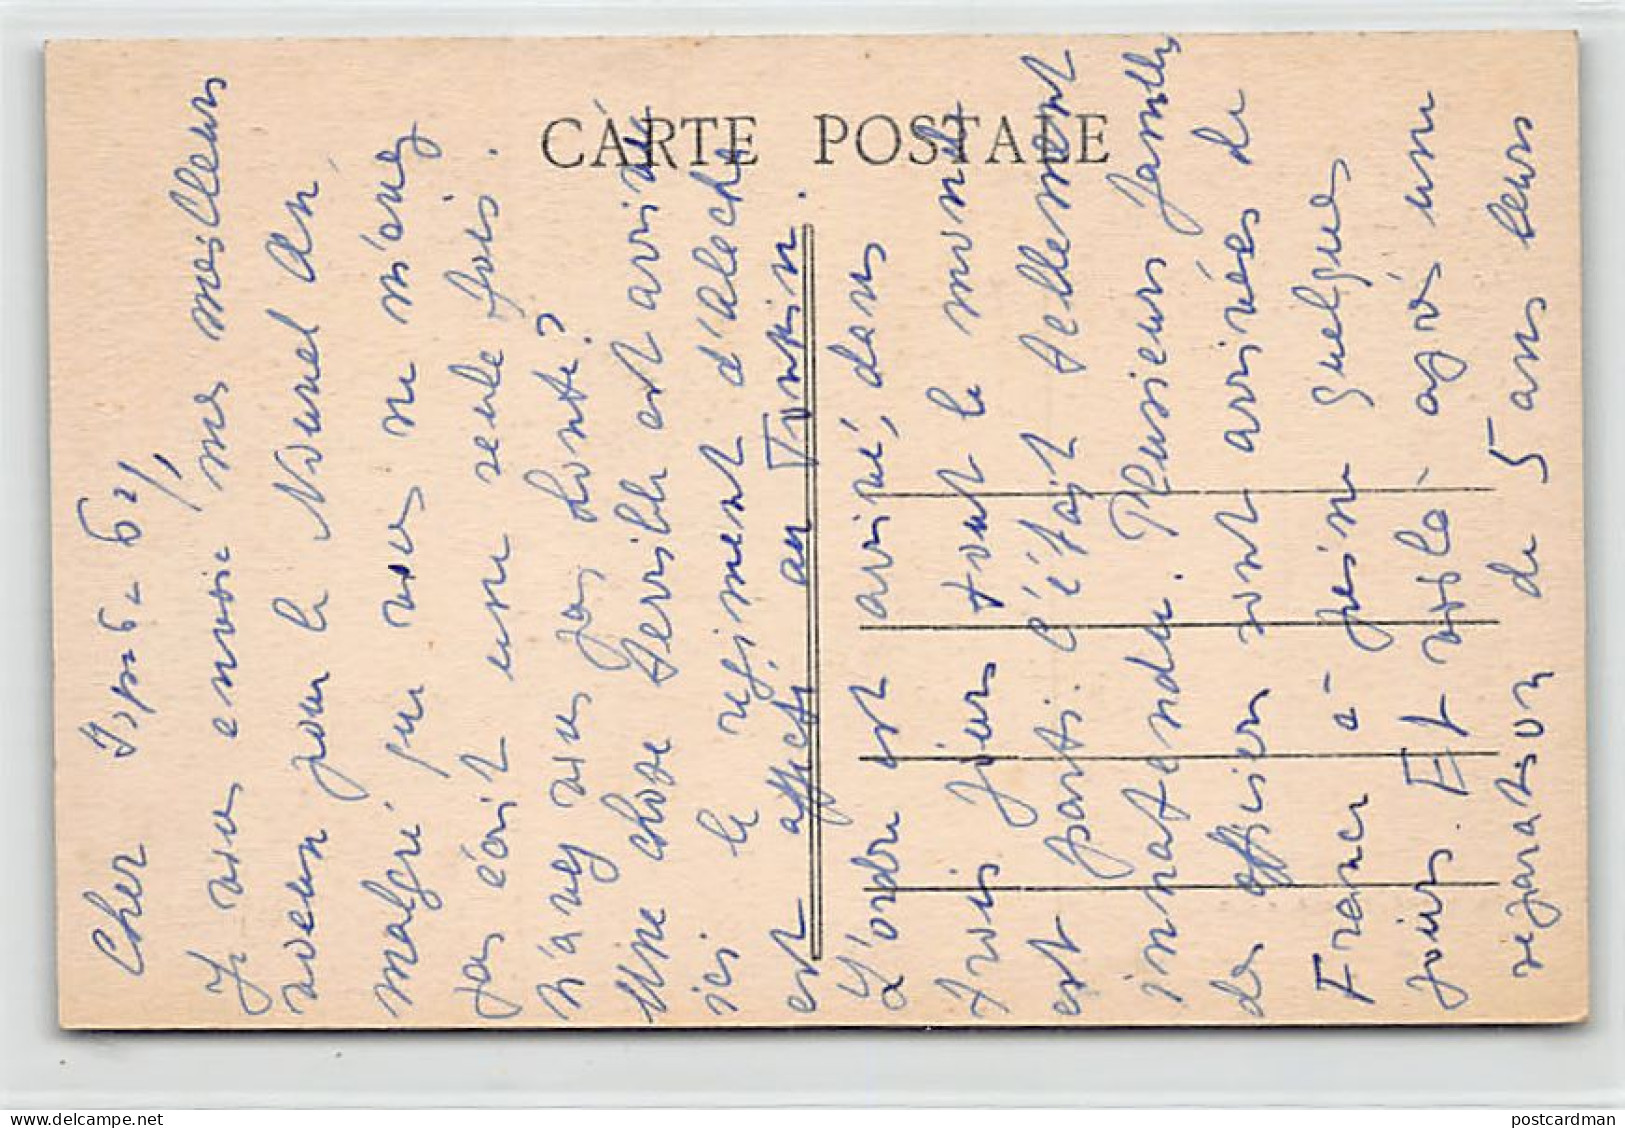 CARTE POSTALE
Cher
Je vous envoie mes meilleurs
voeux pour le Nouvel An
malgré que vous ne m'avez
pas écrit une seule fois.
N'avez vous pas honte?
Une chose terrible est arrivée
ici le regiment d'Alech
est affecté au Tonkin.
L'ordre est arrivé, dans
trois jours tout le monde
est parti. C'était tellement
innatendu. Plusieurs familles
des officiers sont arrivées de
France à peine quelques
jours. Et voilà après une
separation de 5 ans leurs
postcardman